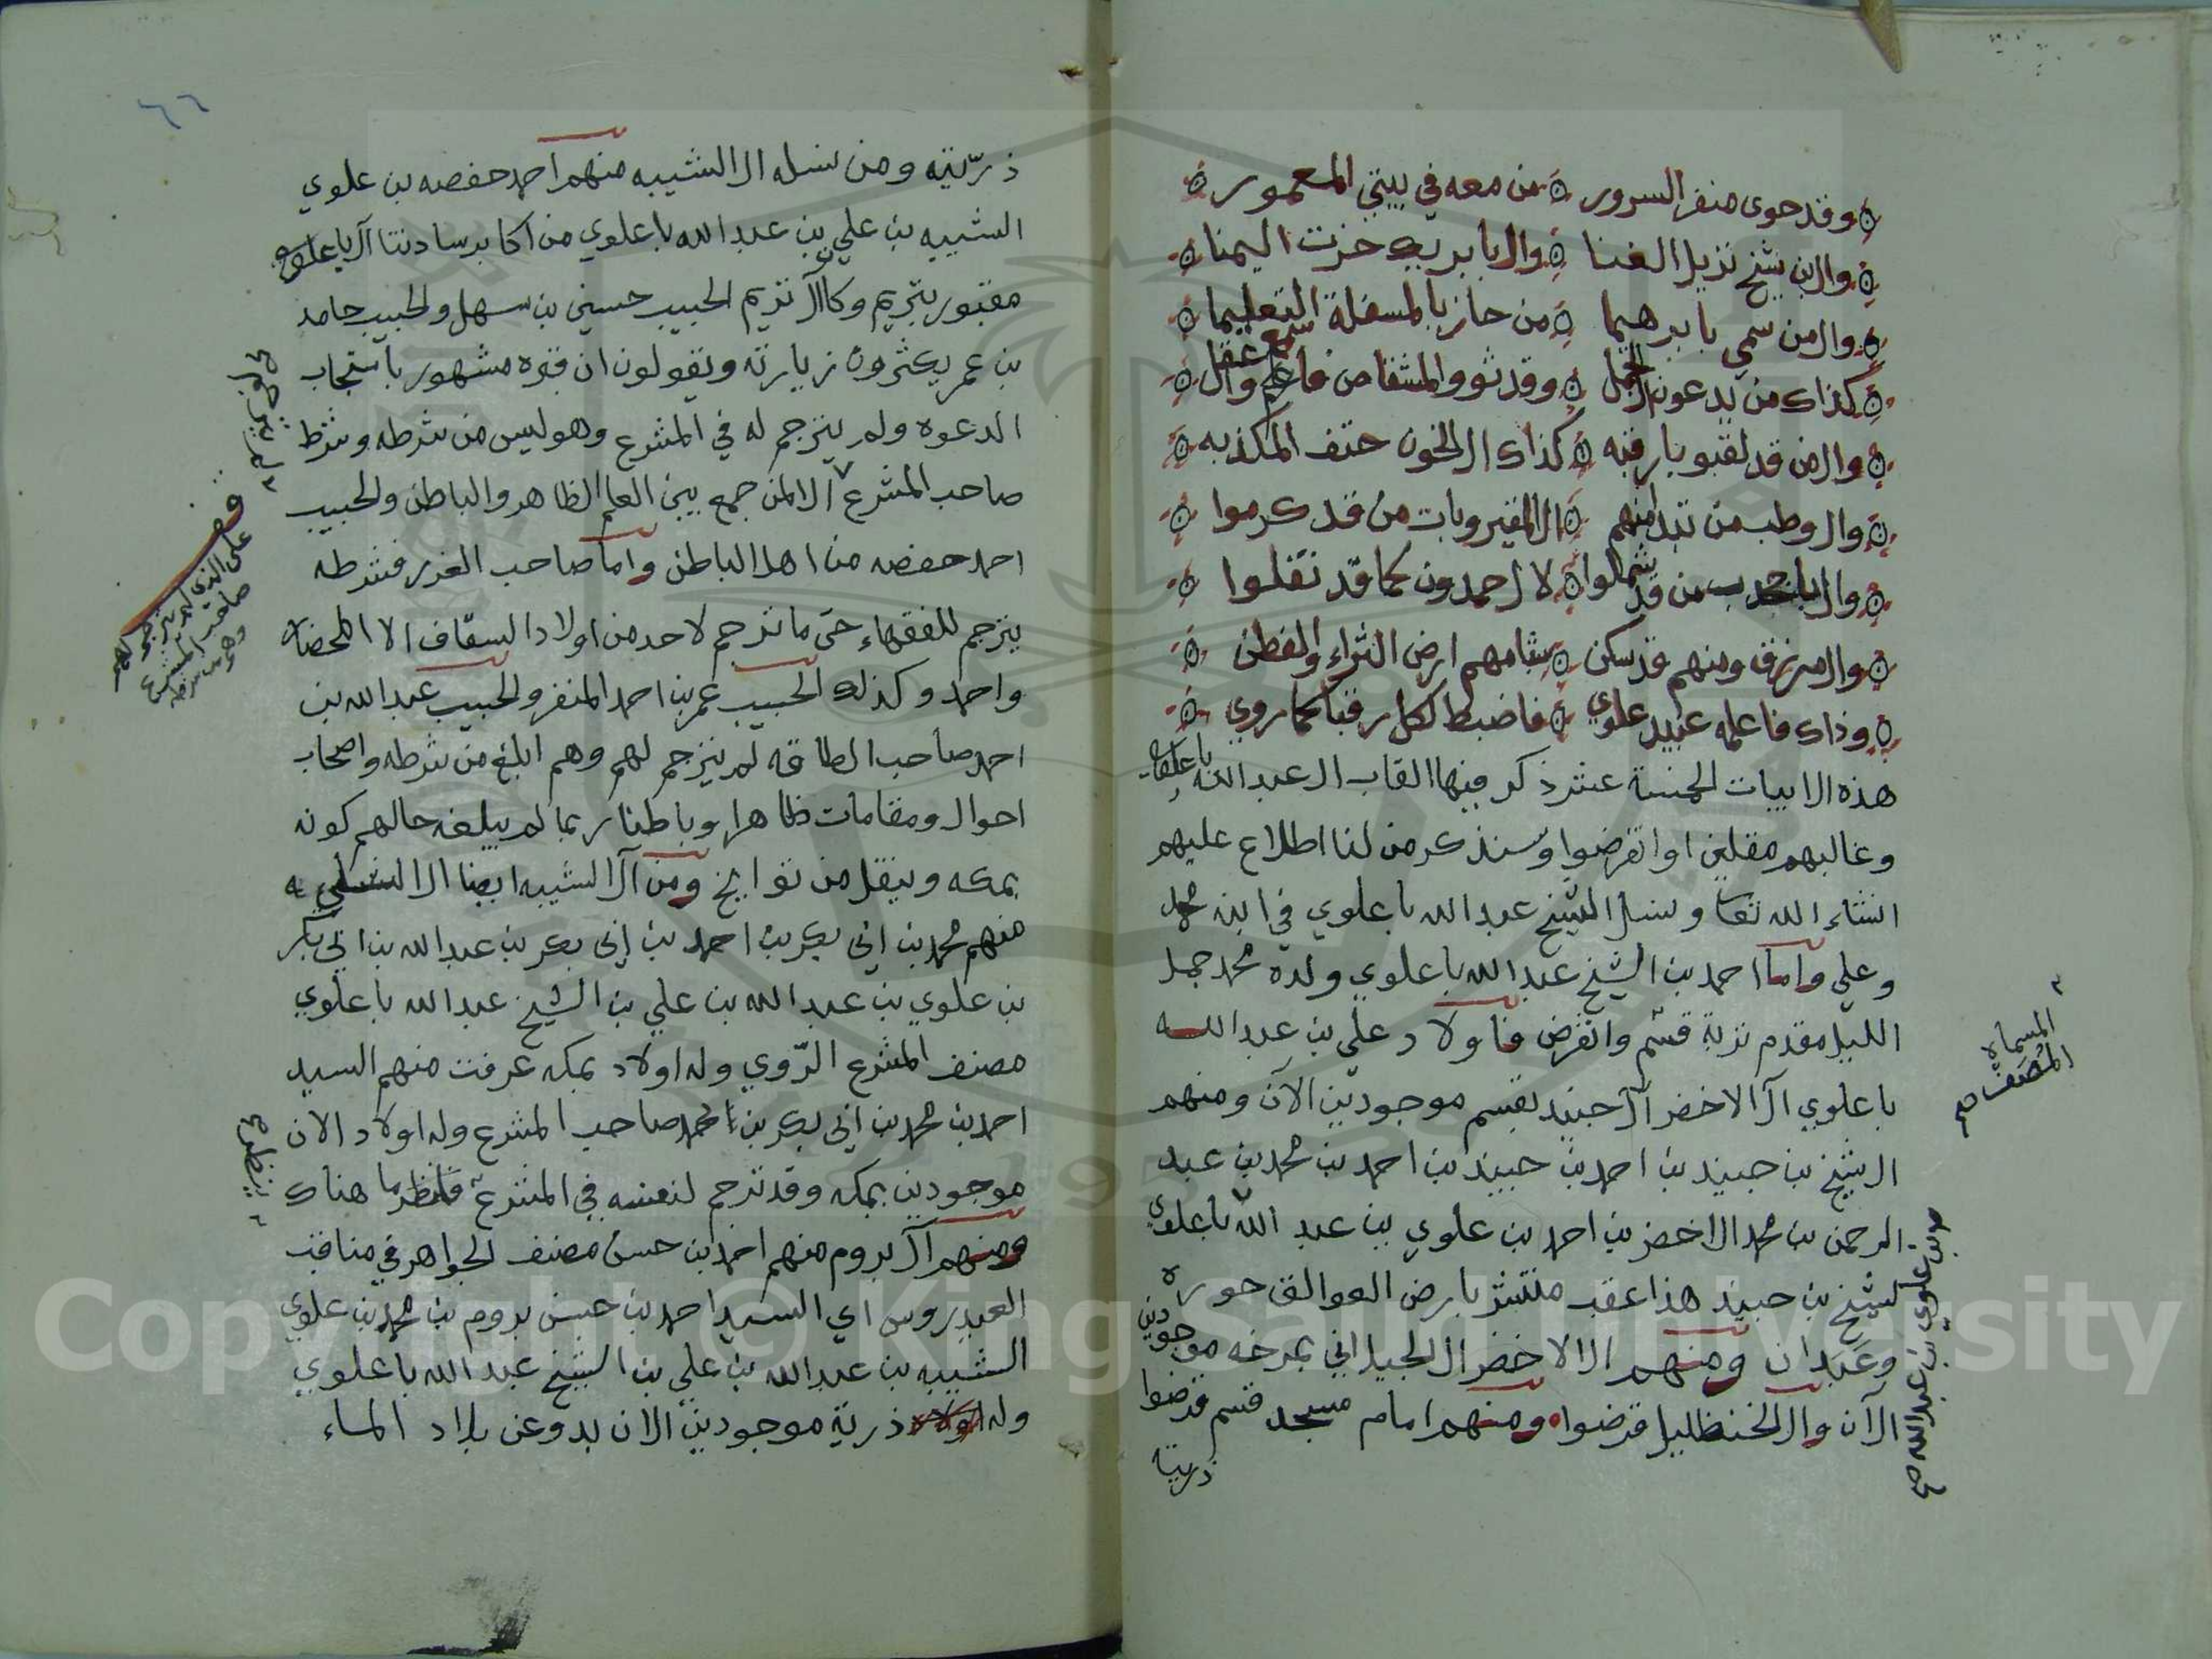 وقد حوى منفر السرور من معه في بيتي المعمور
وال بن شيخ نزيل الغنا وال بابريك حزت اليمنا
وال من سمي بابرهيما من حاز بالمسفلة التعليما
كذاك من يدعون الجمل وقد ثووا المشقاص فاعلم وال
وال من قد لقبو بارقبه كذاك ال الخون حتف المكذبه
وال وطب من تبدا منهم ال المقيروبات من قد كرموا
وال من قد شملوا لال حمدون كما قد نقلوا
وال مرزق ومنهم قد سكن بشامهم ارض الثراء والفطن
وذاك فاعلمه عبيد علوي فاضبط لكل رقبا كما روي
هذه الابيات الخمسة عشر ذكر فيها القاب ال عبد الله باعلوي
وغالبهم مقلين او انقرضوا وسنذكر من لنا اطلاع عليهم
انشاء الله تعا ونسل الشيخ عبد الله باعلوي في ابنه محمد
وعلي واما احمد بن الشيخ عبد الله باعلوي ولده محمد جمل
الليل مقدم تربة قسم وانقرض فاولاد علي بن عبد الله
باعلوي آل الاخضر آل جنيد بقسم موجودين الآن ومنهم
الشيخ بن جنيد بن احمد بن جنيد بن احمد بن محمد بن عبد
الرحمن بن محمد الاخضر بن احمد بن علوي بن عبد الله باعلوي
لشيخ بن جنيد هذا عقب منتشر بارض العوالق حوره
وعبدان ومنهم ال الاخضر ال الجيلاني بمرخه موجودين
الآن وال الخنظليل قرضوا ومنهم امام مسجد قسم قرضوا
ذريته
المسماه
المصنف صح
بن علوي بن عبد الله صح
٦٦
ذريته ومن نسله ال الشيبه منهم احمد حفصه بن علوي
الشيبه بن علي بن عبد الله باعلوي من اكابر سادتنا آل باعلوي
مقبور بتريم وكان آل تريم الحبيب حسين بن سهل والحبيب حامد
بن عمر يكثرون زيارته ويقولون ان قبره مشهور باستجاب
الدعوه ولم يترجم له في المشرع وهو ليس من شرطه وشرط
صاحب المشرع الا لمن جمع بين العلم الظاهر والباطن والحبيب
احمد حفصه من اهل الباطن واما صاحب الغرر فشرطه
يترجم للفقهاء حتى ما ترجم لاحد من اولاد السقاف الا المحضار
واحمد وكذلك الحبيب عمر بن احمد المنفر والحبيب عبد الله بن
احمد صاحب الطاقه لم يترجم لهم وهم ابلغ من شرطه واصحاب
احوال ومقامات ظاهرا وباطنا ربما لم يبلغه حالهم كونه
بمكه وينقل من تواريخ ومن آل الشيبه ايضا ال الشلي
منهم محمد بن ابي بكر بن احمد بن ابي بكر بن عبد الله بن ابي بكر
بن علوي بن عبد الله بن علي بن الشيخ عبد الله باعلوي
مصنف المشرع الروي وله اولاد بمكه عرفت منهم السيد
احمد بن محمد بن ابي بكر بن محمد صاحب المشرع وله اولاد الان
موجودين بمكه وقد ترجم لنفسه في المشرع فانظر ما هناك
ومنهم آل بروم منهم احمد بن حسن مصنف الجواهر في مناقب
العيدروس اي السيد احمد بن حسن بروم بن محمد بن علوي
الشيبه بن عبد الله بن علي بن الشيخ عبد الله باعلوي
وله اولاد ذرية موجودين الان بدوعن بلاد الماء
قف
على الذي لم يترجم لهم
صاحب المشرع
وهو من شرطه
Copyright © King Saud University
195